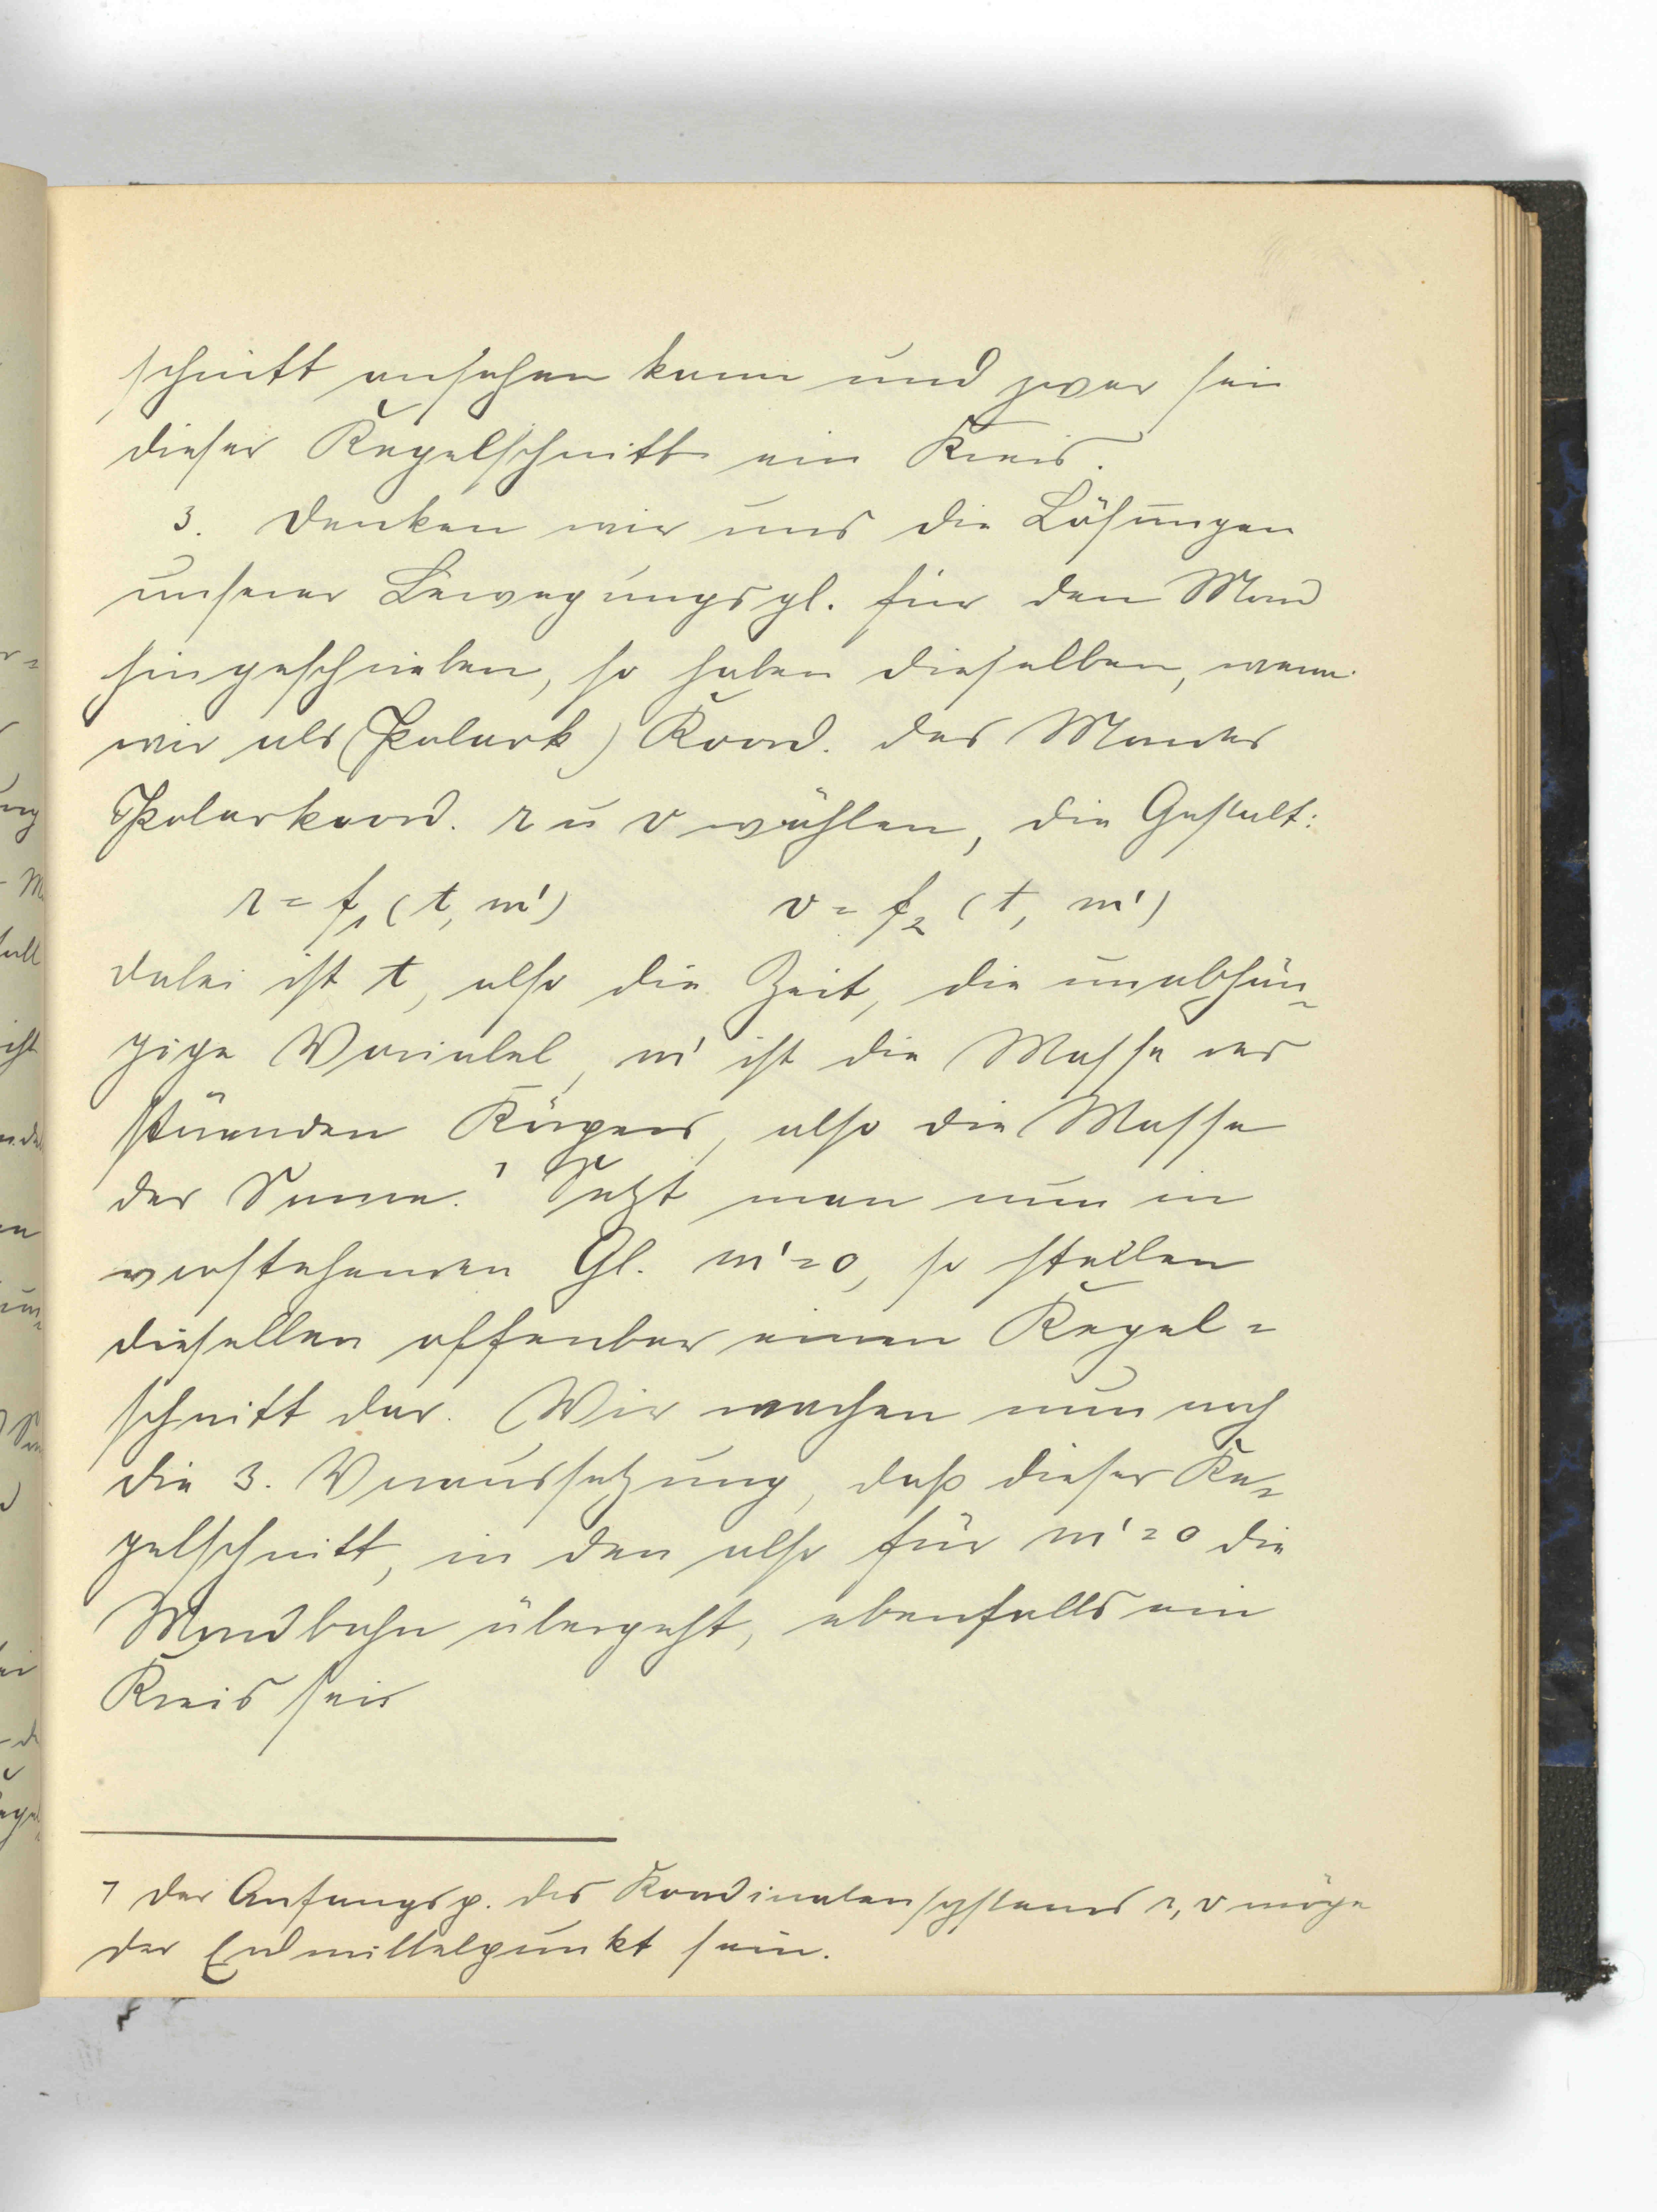 schnitt ansehen kann und zwar sei
dieser Kegelschnitt ein Kreis.
3. Denken wir uns die Lösungen
unserer Bewegungsgl. für den Mond
hingeschrieben, so haben dieselben, wenn
wir als (Polark) Koord. des Mondes
Polarkoord. r u v wählen, die Gestalt:
r = f₁ (t, m') v = f₂ (t, m')
dabei ist t, also die Zeit, die unabhän-
gige Variabel, m' ist die Masse des
störenden Körpers, also die Masse
der Sonne. ⁊ Setzt man nun in
vorstehenden Gl. m'=0, so stellen
dieselben offenbar einen Kegel=
schnitt dar. Wir machen nun noch
die 3. Voraussetzung, daß dieser Ke-
gelschnitt, in den also für m'=0 die
Mondbahn übergeht, ebenfalls ein
Kreis sei
⁊ Der Anfangsp. des Koordinatensystems r, v möge
der Erdmittelpunkt sein.